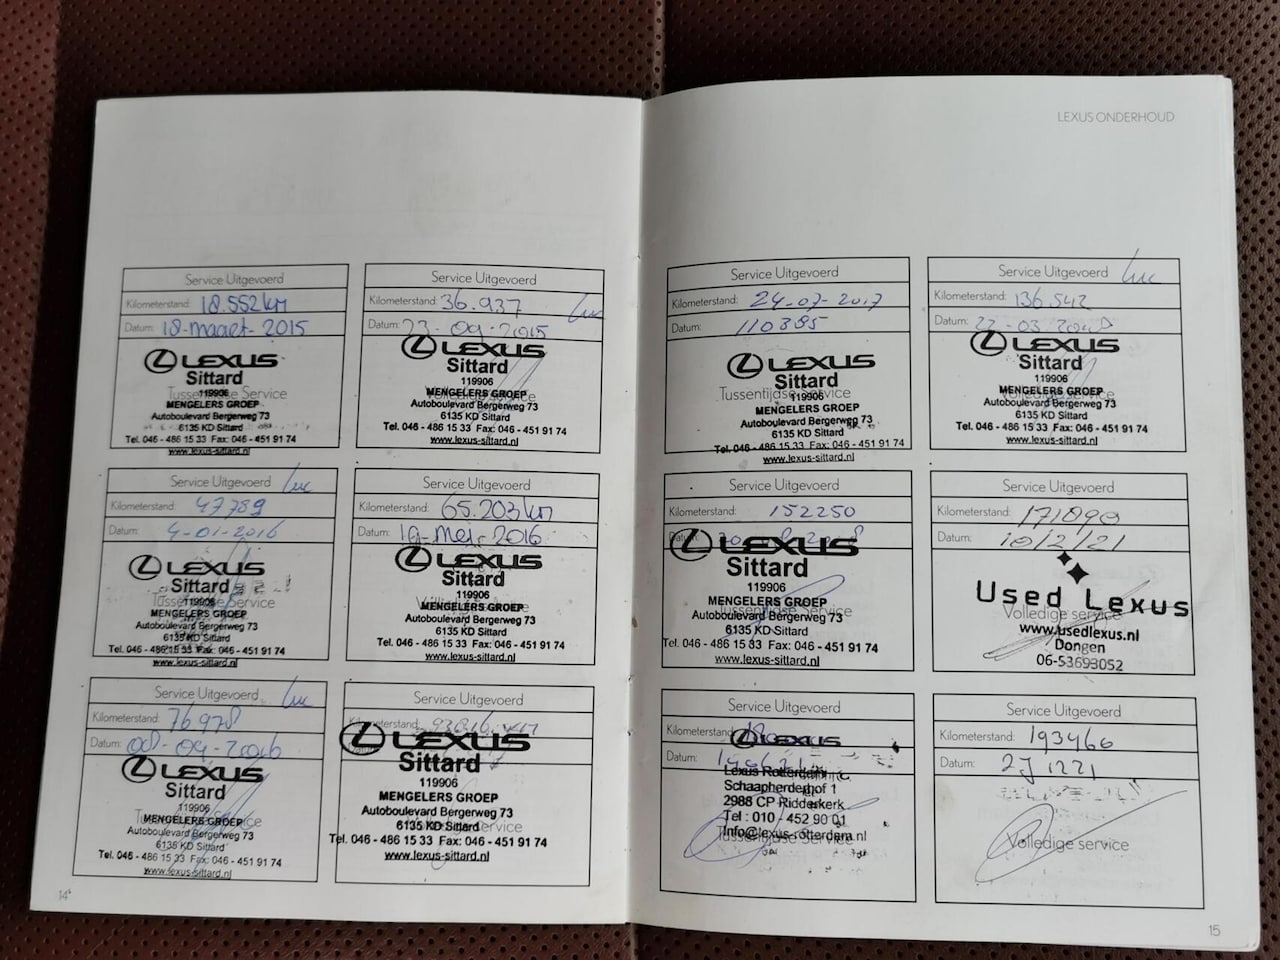 LEXUS ONDERHOUD
Service Uitgevoerd
Kilometerstand: 18.552 km
Datum: 18-maart-2015
LEXUS
Sittard
119906
Tussentijdse Service
MENGELERS GROEP
Autoboulevard Bergerweg 73
6135 KD Sittard
Tel. 046 - 486 15 33 Fax: 046 - 451 91 74
www.lexus-sittard.nl
Service Uitgevoerd
Kilometerstand: 36.937
Luc
Datum: 23-09-2015
LEXUS
Sittard
119906
MENGELERS GROEP
Volledige service
Autoboulevard Bergerweg 73
6135 KD Sittard
Tel. 046 - 486 15 33 Fax: 046 - 451 91 74
www.lexus-sittard.nl
Service Uitgevoerd
Luc
Kilometerstand: 47789
Datum: 4-01-2016
LEXUS
Sittard
119906
Tussentijdse Service
MENGELERS GROEP
Autoboulevard Bergerweg 73
6135 KD Sittard
Tel. 046 - 486 15 33 Fax: 046 - 451 91 74
www.lexus-sittard.nl
Service Uitgevoerd
Kilometerstand: 65.203 km
Datum: 19-Mei-2016
LEXUS
Sittard
119906
MENGELERS GROEP
Volledige service
Autoboulevard Bergerweg 73
6135 KD Sittard
Tel. 046 - 486 15 33 Fax: 046 - 451 91 74
www.lexus-sittard.nl
Service Uitgevoerd
Luc
Kilometerstand: 76978
Datum: 08-09-2016
LEXUS
Sittard
119906
Tussentijdse Service
MENGELERS GROEP
Autoboulevard Bergerweg 73
6135 KD Sittard
Tel. 046 - 486 15 33 Fax: 046 - 451 91 74
www.lexus-sittard.nl
Service Uitgevoerd
Kilometerstand:
LEXUS
Sittard
119906
MENGELERS GROEP
Autoboulevard Bergerweg 73
6135 KD Sittard
Service
Tel. 046 - 486 15 33 Fax: 046 - 451 91 74
www.lexus-sittard.nl
14
Service Uitgevoerd
Kilometerstand: 24-07-2017
Datum: 110385
LEXUS
Sittard
Tussentijdse Service
119906
MENGELERS GROEP
Autoboulevard Bergerweg 73
6135 KD Sittard
Tel. 046 - 486 15 33 Fax: 046 - 451 91 74
www.lexus-sittard.nl
Luc
Service Uitgevoerd
Kilometerstand: 136.542
Datum: 22-03-2018
LEXUS
Sittard
119906
MENGELERS GROEP
Volledige service
Autoboulevard Bergerweg 73
6135 KD Sittard
Tel. 046 - 486 15 33 Fax: 046 - 451 91 74
www.lexus-sittard.nl
Service Uitgevoerd
Kilometerstand: 152250
Datum:
LEXUS
Sittard
119906
MENGELERS GROEP
Tussentijdse Service
Autoboulevard Bergerweg 73
6135 KD Sittard
Tel. 046 - 486 15 33 Fax: 046 - 451 91 74
www.lexus-sittard.nl
Service Uitgevoerd
Kilometerstand: 171090
Datum: 10/2/21
Used Lexus
Volledige service
www.usedlexus.nl
Dongen
06-53693052
Service Uitgevoerd
Kilometerstand:
LEXUS
Datum:
Lexus Rotterdam
Schaapherderhof 1
2988 CP Ridderkerk
Tel : 010 - 452 90 01
Info@lexus-rotterdam.nl
Tussentijdse Service
Service Uitgevoerd
Kilometerstand: 193466
Datum:
Volledige service
15